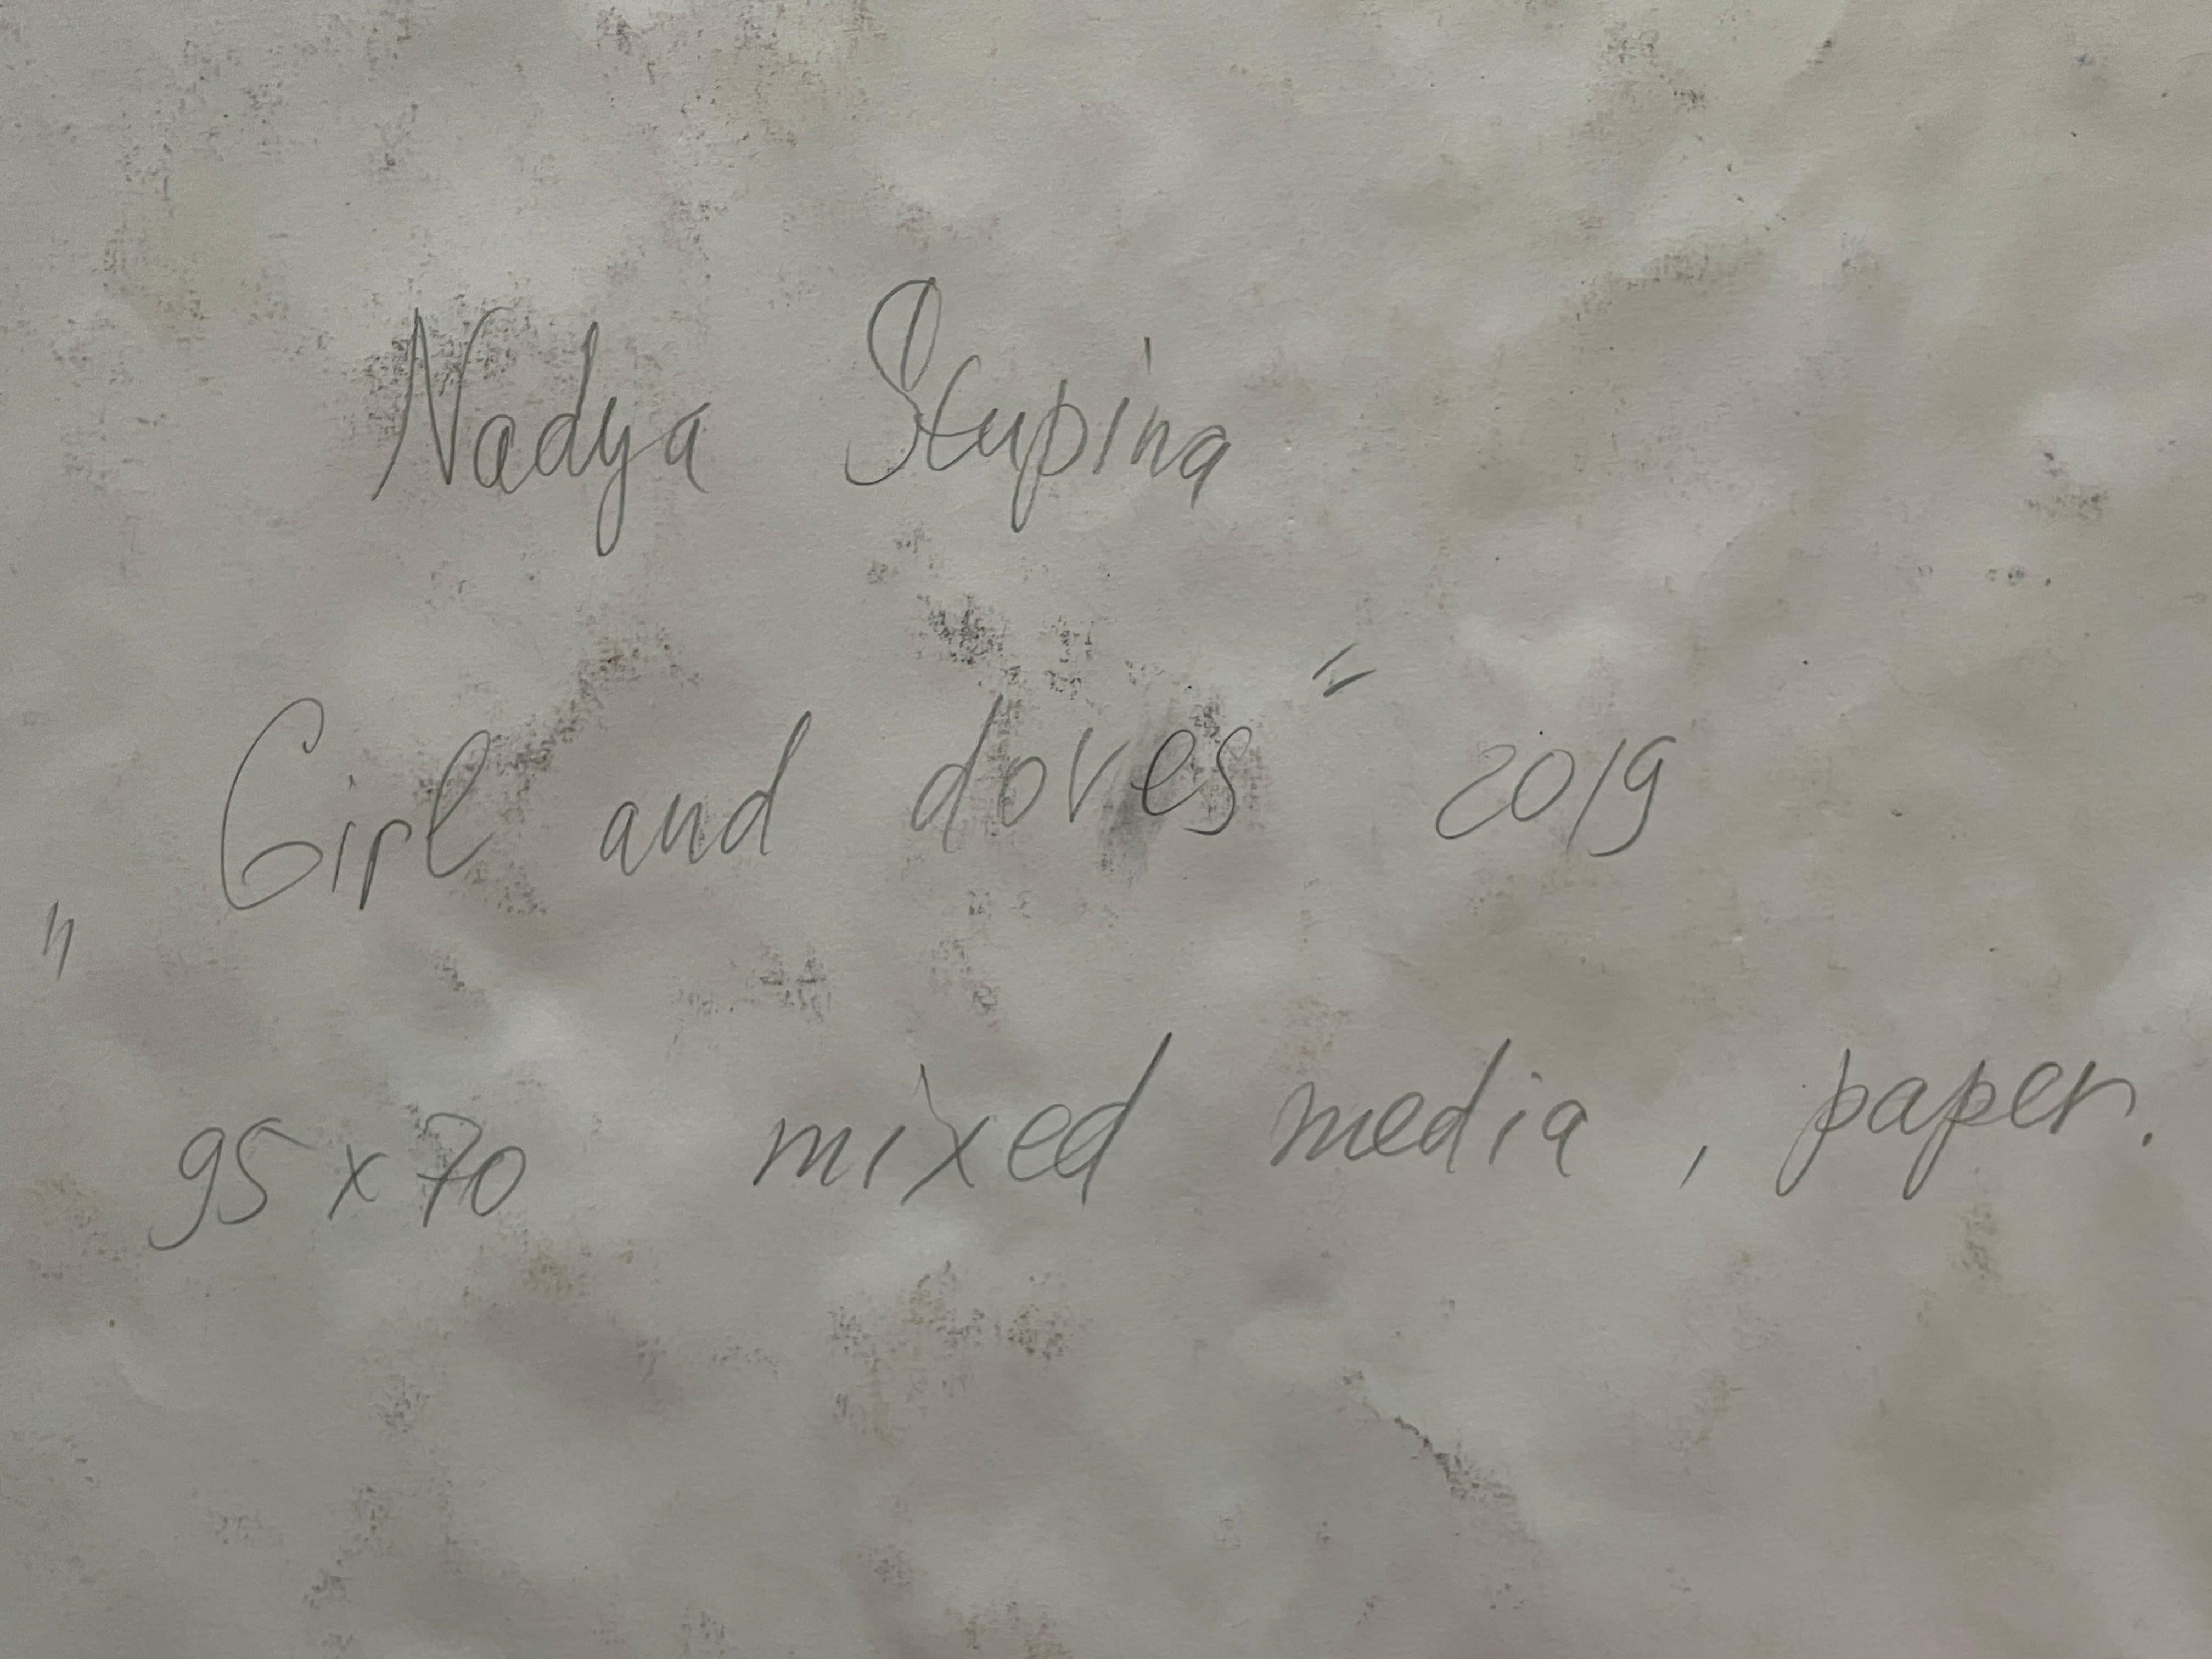 Nadya Stupina
„Girl and doves" 2019
95 x 70 mixed media, paper.